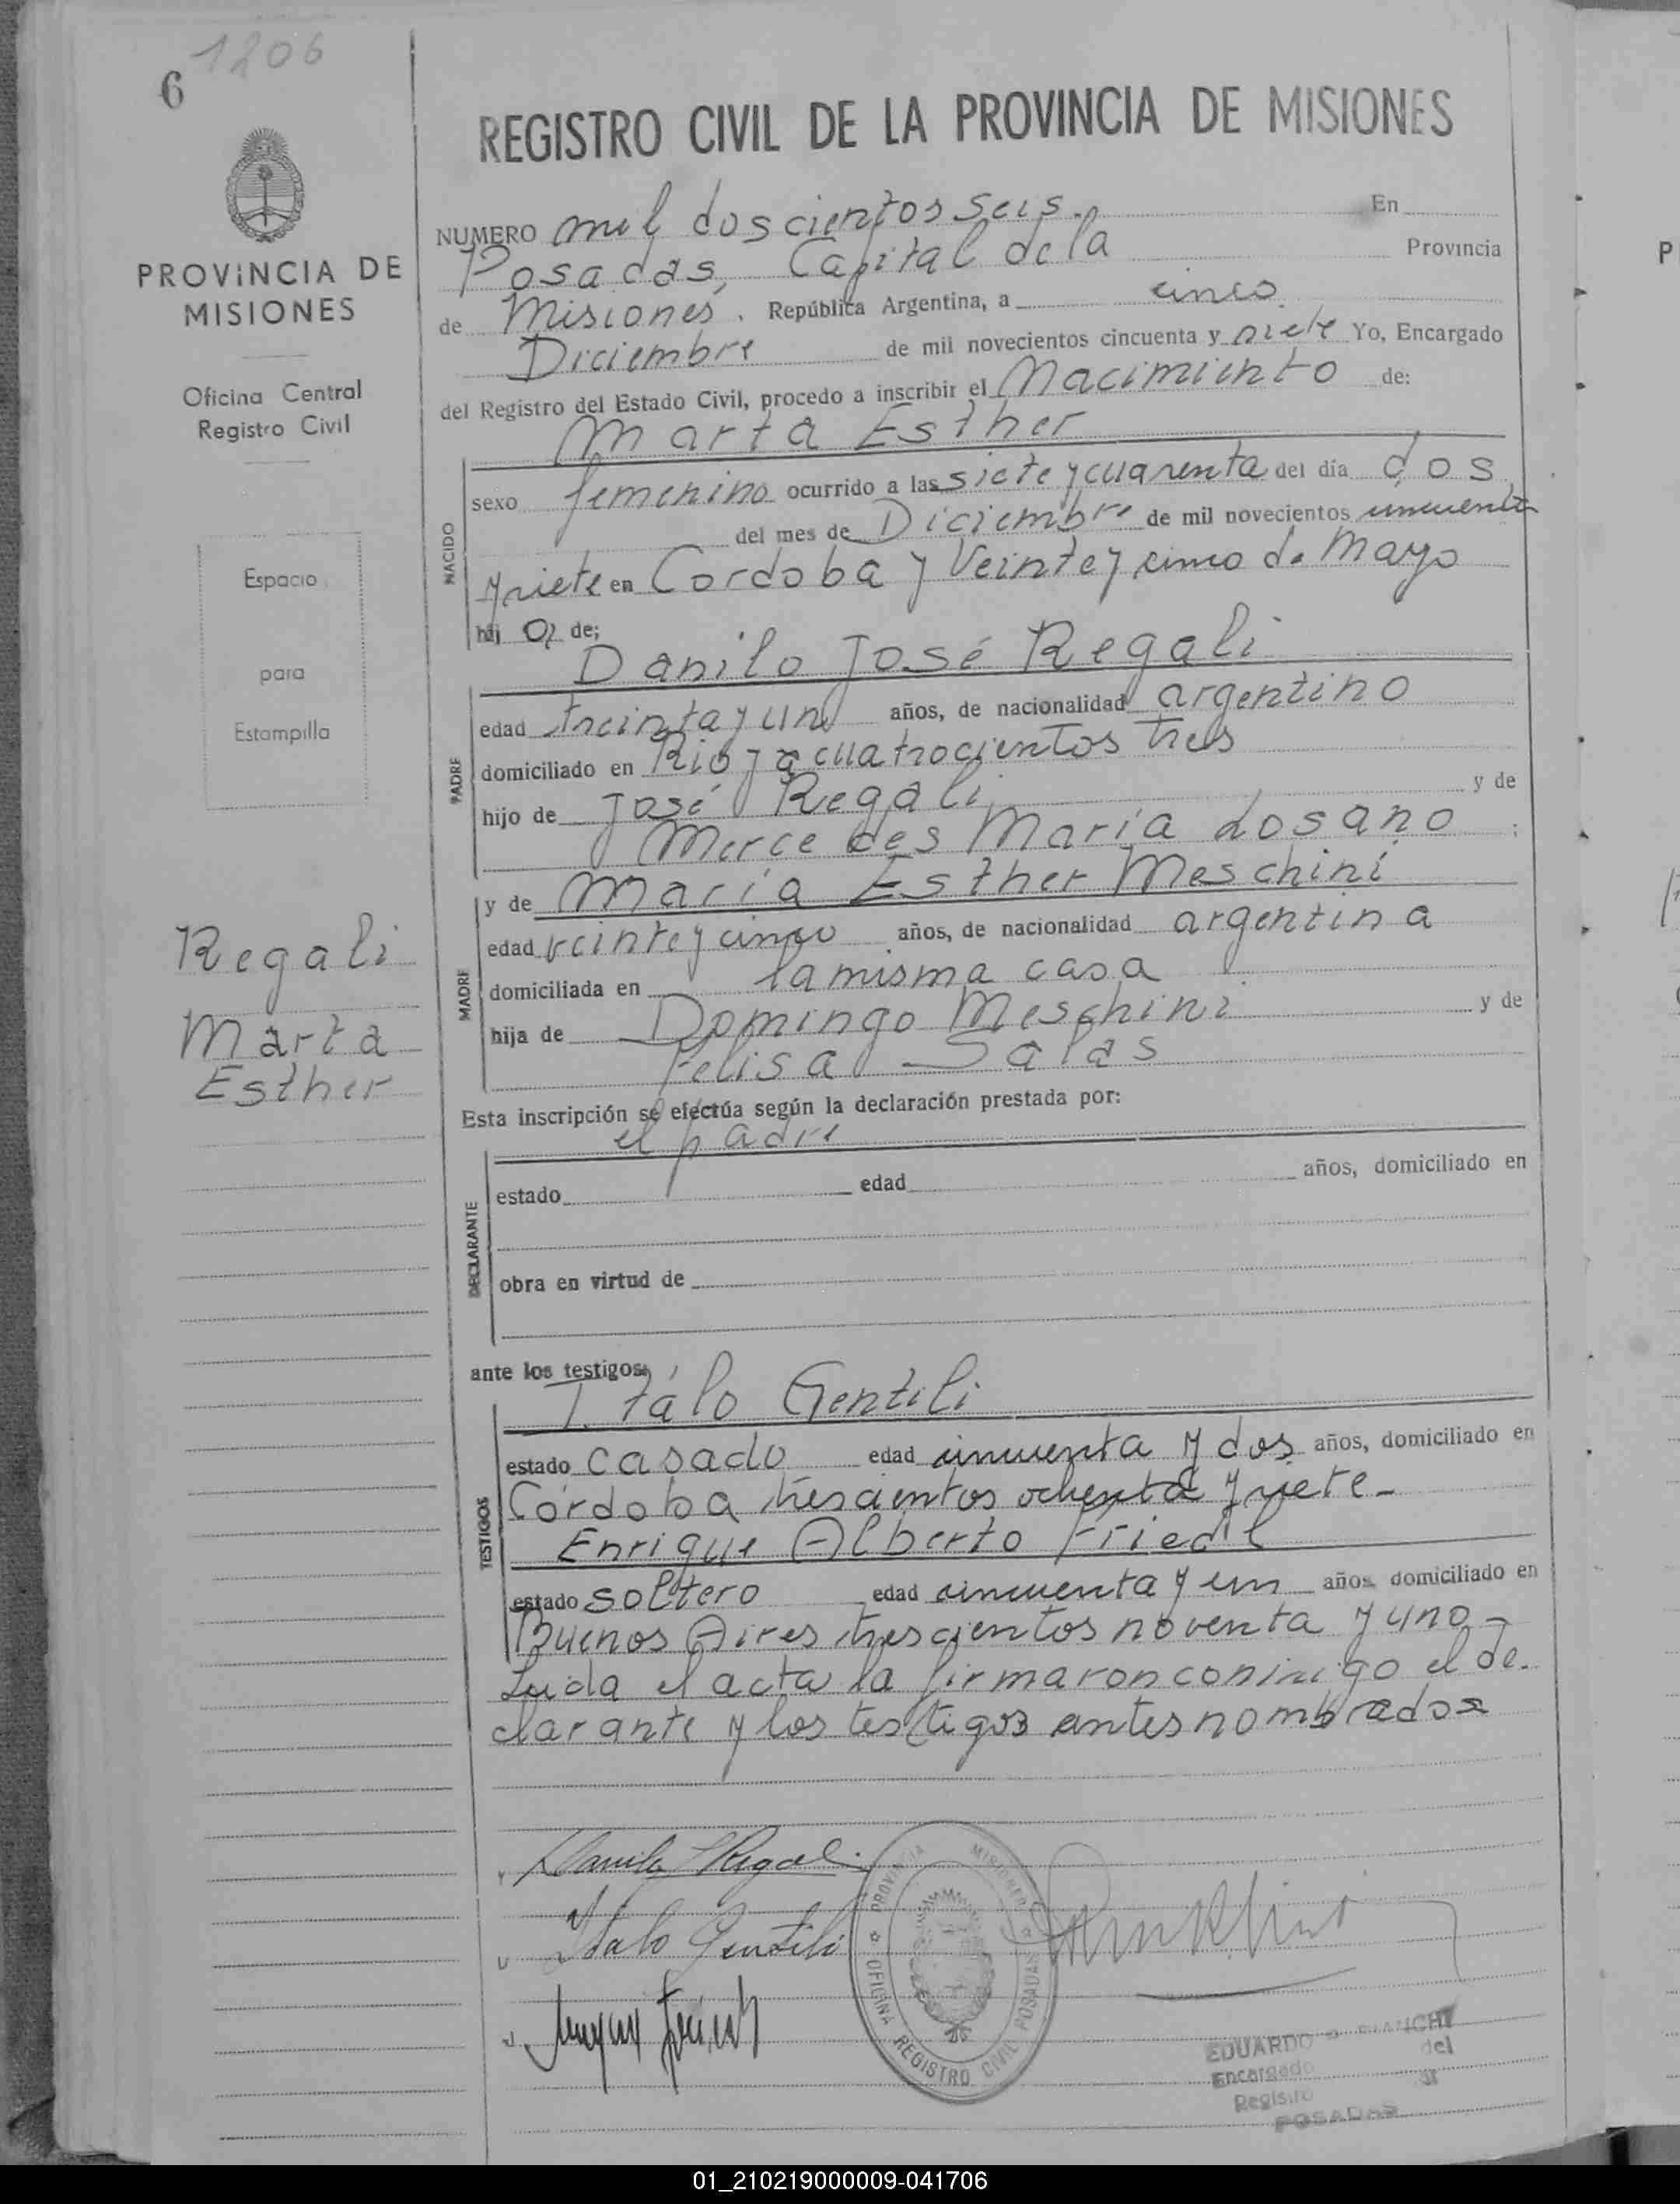 1206
6
PROVINCIA DE
MISIONES
Oficina Central
Registro Civil
Espacio
para
Estampilla
Regali
Marta
Esther
REGISTRO CIVIL DE LA PROVINCIA DE MISIONES
NUMERO mil doscientos seis. En
Posadas, Capital de la Provincia
de Misiones. República Argentina, a cinco
Diciembre de mil novecientos cincuenta y siete Yo, Encargado
del Registro del Estado Civil, procedo a inscribir el Nacimiento de:
Marta Esther
NACIDO
sexo femenino ocurrido a las siete y cuarenta del día dos
del mes de Diciembre de mil novecientos cincuenta
y siete en Cordoba y Veinte y cinco de Mayo
hij a de;
Danilo José Regali
PADRE
edad treinta y un años, de nacionalidad argentino
domiciliado en Rioja cuatrocientos tres
hijo de José Regali y de
Mercedes María Losano ;
y de María Esther Meschini
MADRE
edad veinte y cinco años, de nacionalidad argentina
domiciliada en la misma casa
hija de Domingo Meschini y de
Felisa Salas
Esta inscripción se efectúa según la declaración prestada por:
el padre
DECLARANTE
estado edad años, domiciliado en
obra en virtud de
ante los testigos:
Italo Gentili
TESTIGOS
estado casado edad cincuenta y dos años, domiciliado en
Córdoba trescientos ochenta y siete-
Enrique Alberto Friedl
estado soltero edad cincuenta y un años domiciliado en
Buenos Aires trescientos noventa y uno-
Leida el acta la firmaron conmigo el de-
clarante y los testigos antes nombrados
Danilo J Regali
Italo Gentili
PROVINCIA MISIONES
OFICINA REGISTRO CIVIL POSADAS
EDUARDO BIANCHI
Encargado del
Registro
POSADAS
01_210219000009-041706